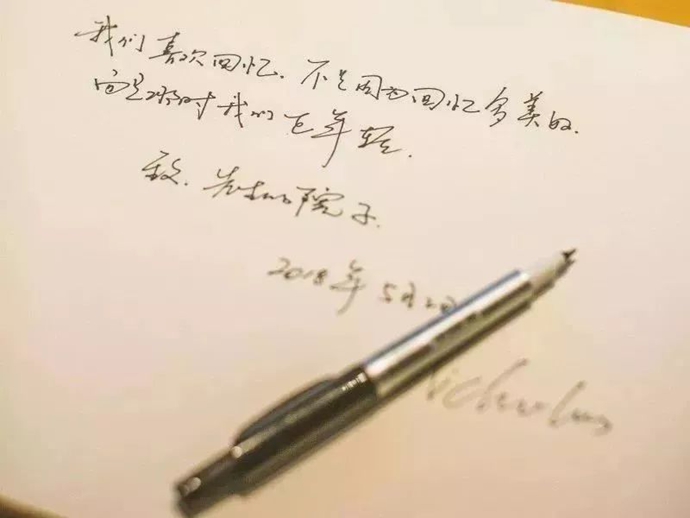 我们喜欢回忆、不是因为回忆多美好.
而是那时我们正年轻.
致.老杜的院子.
2018年5月2日
Nicholas